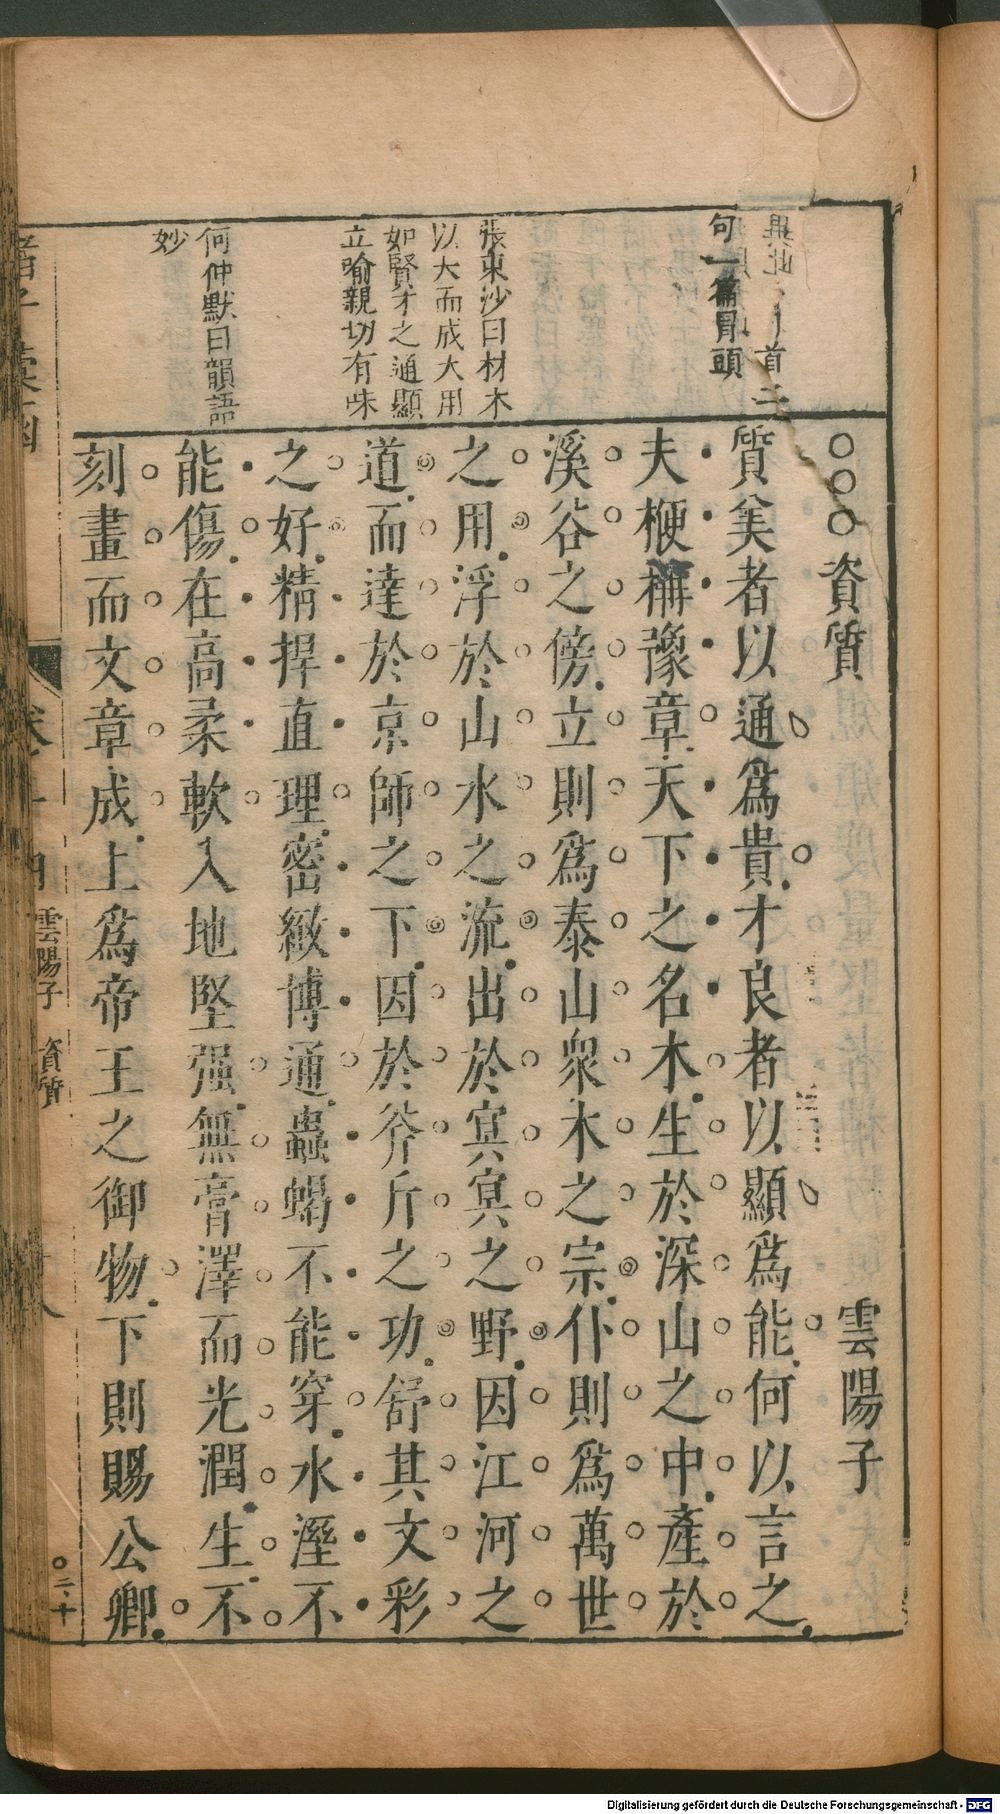 首二
句一篇骨頭
張東沙曰材木
以大而成大用
如賢才之通顯
立喻親切有味
何仲默曰韻語
妙
資質 雲陽子
質美者以通為貴才良者以顯為能何以言之
夫楩柟豫章天下之名木生於深山之中產於
溪谷之傍立則為泰山衆木之宗仆則為萬世
之用浮於山水之流出於㝠㝠之野因江河之
道而達於京師之下因於斧斤之功舒其文彩
之好精捍直理密緻博通蟲蝎不能穿水溼不
能傷在高柔軟入地堅强無膏澤而光潤生不
刻畫而文章成上為帝王之御物下則賜公卿
雲陽子 資質
Digitalisierung gefördert durch die Deutsche Forschungsgemeinschaft - DFG